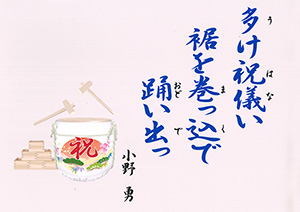 多け祝儀い
裾を巻っ込で
踊い出っ
小野 勇
祝